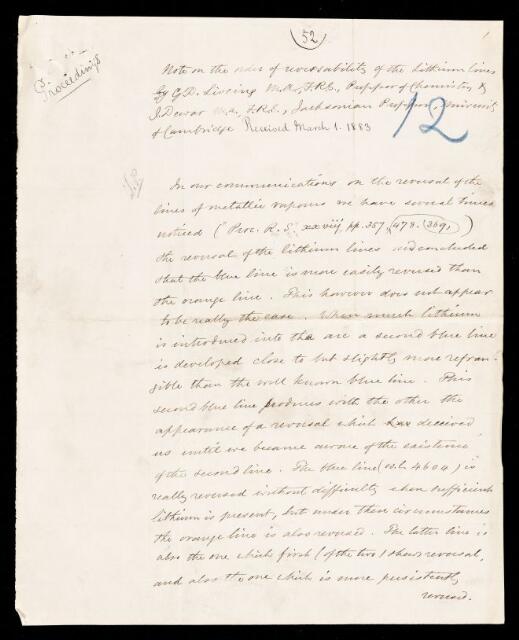 52
Proceedings
Note on the order of reversability of the Lithium lines
by G.D. Liveing M.A., F.R.S., Professor of Chemistry, &
J. Dewar M.A., F.R.S., Jacksonian Professor, University
of Cambridge Received March 1. 1883
12
In our communications on the reversal of the
lines of metallic vapours we have several times
noticed ("Proc. R. S." xxviij pp. 357, 473. 369,)
the reversal of the lithium lines and concluded
that the blue line is more easily reversed than
the orange line. This however does not appear
to be really the case. When much lithium
is introduced into the arc a second blue line
is developed close to but slightly more refran-
gible than the well known blue line. This
second blue line produces with the other the
appearance of a reversal which has deceived
us until we became aware of the existence
of the second line. The blue line (w.l. 4604) is
really reversed without difficulty when sufficient
lithium is present, but under these circumstances
the orange line is also reversed. The latter line is
also the one which first (of the two) shows reversal,
and also the one which is more persistently
reversed.